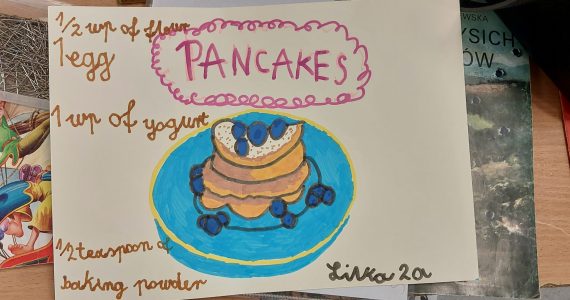 1/2 cup of flour
1 egg
PANCAKES
1 cup of yogurt
1/2 teaspoon of
baking powder
Lilka 2a
WSKA
YSICH
ÓW